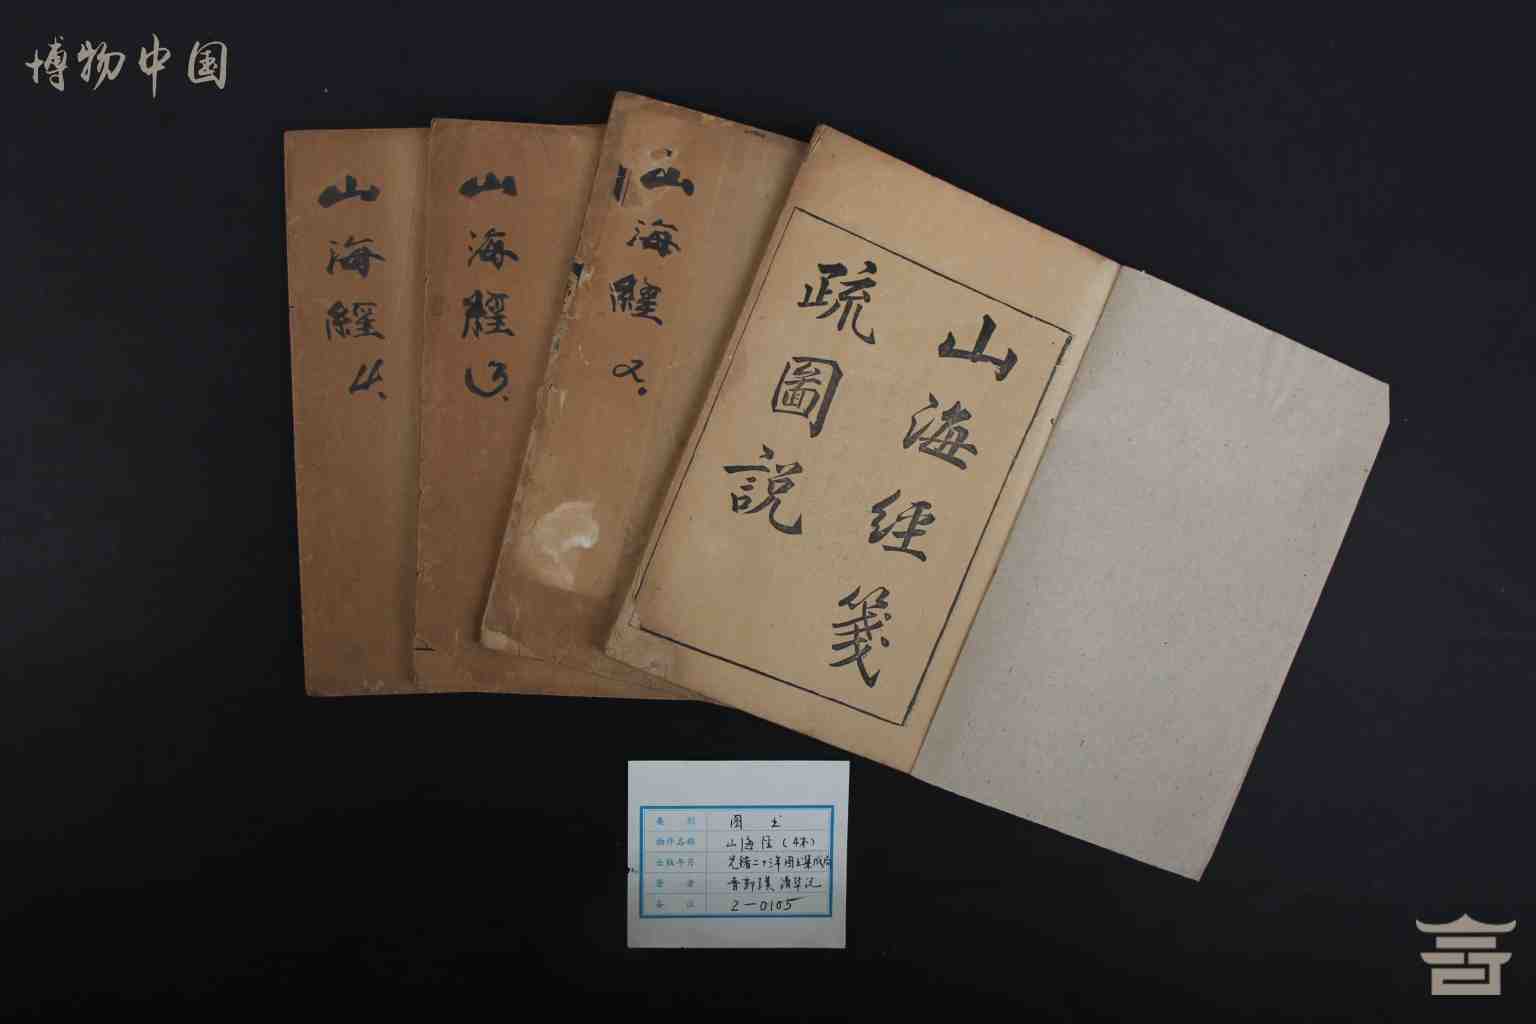 博物中国
山海經4.
山海經3.
山海經2.
山海经箋
疏圖說
类别 图书
物件名称 山海经(4本)
出版年月 光绪二十三年图书集成局
著者 晋郭璞 清毕沅
备注 2-0105